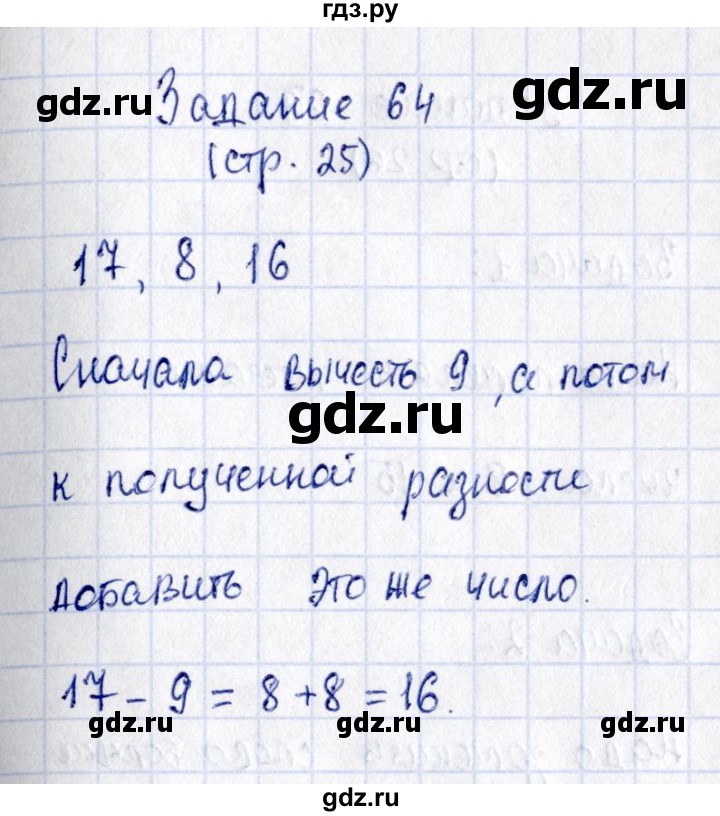 гдз.ру
Задание 64
gdz.ru
gdz.ru
(стр. 25)
17, 8, 16
Сначала вычесть 9, а потом
gdz.ru
к полученной разности
добавить это же число.
17 - 9 = 8 + 8 = 16.
gdz.ru
gdz.ru
gdz.ru
gdz.ru